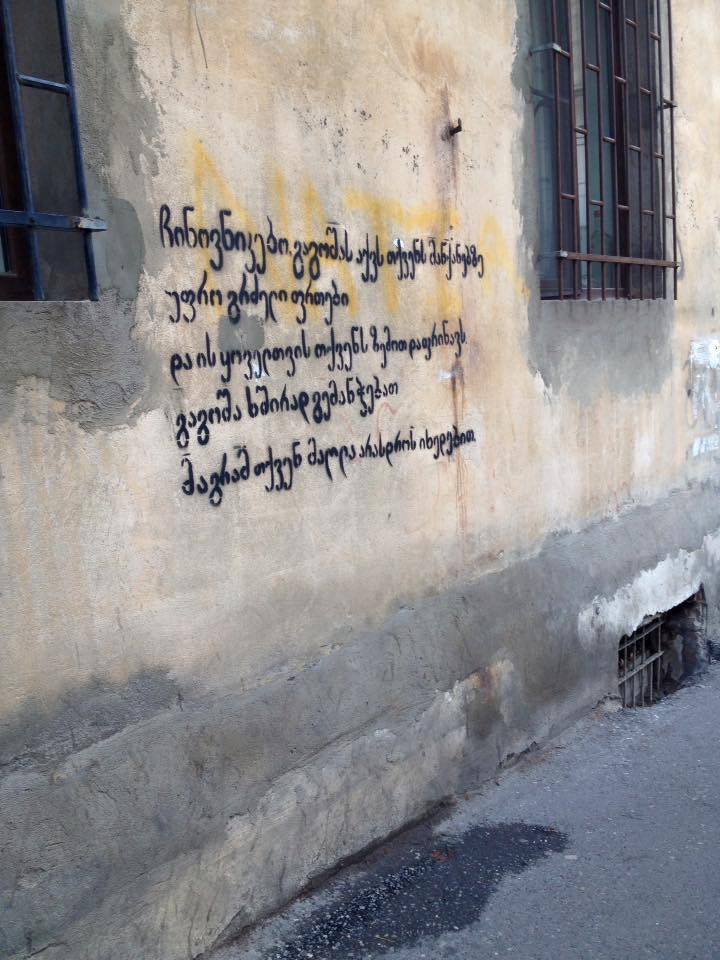 ჩინოვნიკებო, გაგოშას აქვს თქვენს მანქანებზე
უფრო გრძელი ფრთები
და ის ყოველთვის თქვენს ზემით დაფრინავს.
გაგოშა ხშირად გემანჭებათ
მაგრამ თქვენ მაღლა არასდროს იხედებით.